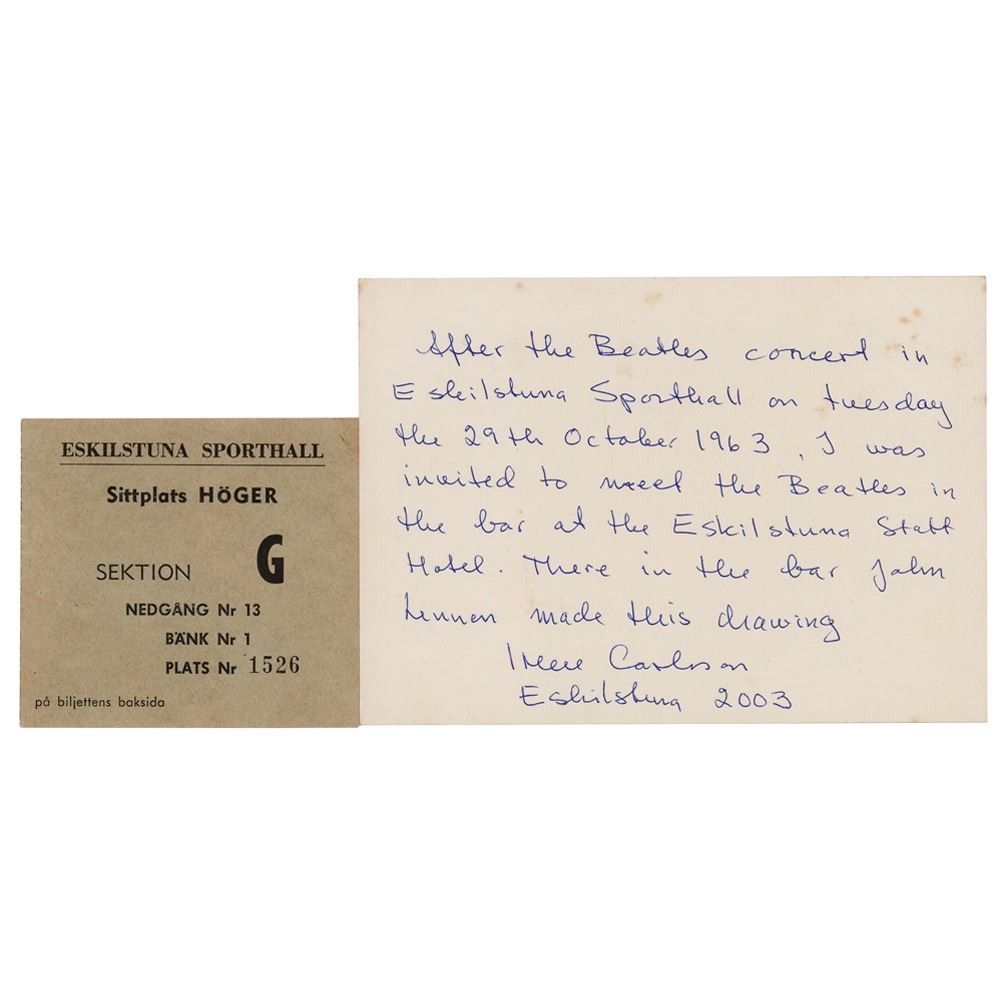 ESKILSTUNA SPORTHALL
Sittplats HÖGER
SEKTION G
NEDGÅNG Nr 13
BÄNK Nr 1
PLATS Nr 1526
på biljettens baksida
After the Beatles concert in
Eskilstuna Sporthall on tuesday
the 29th October 1963, I was
invited to meet the Beatles in
the bar at the Eskilstuna Statt
Hotel. There in the bar John
Lennon made this drawing
Irene Carlsson
Eskilstuna 2003